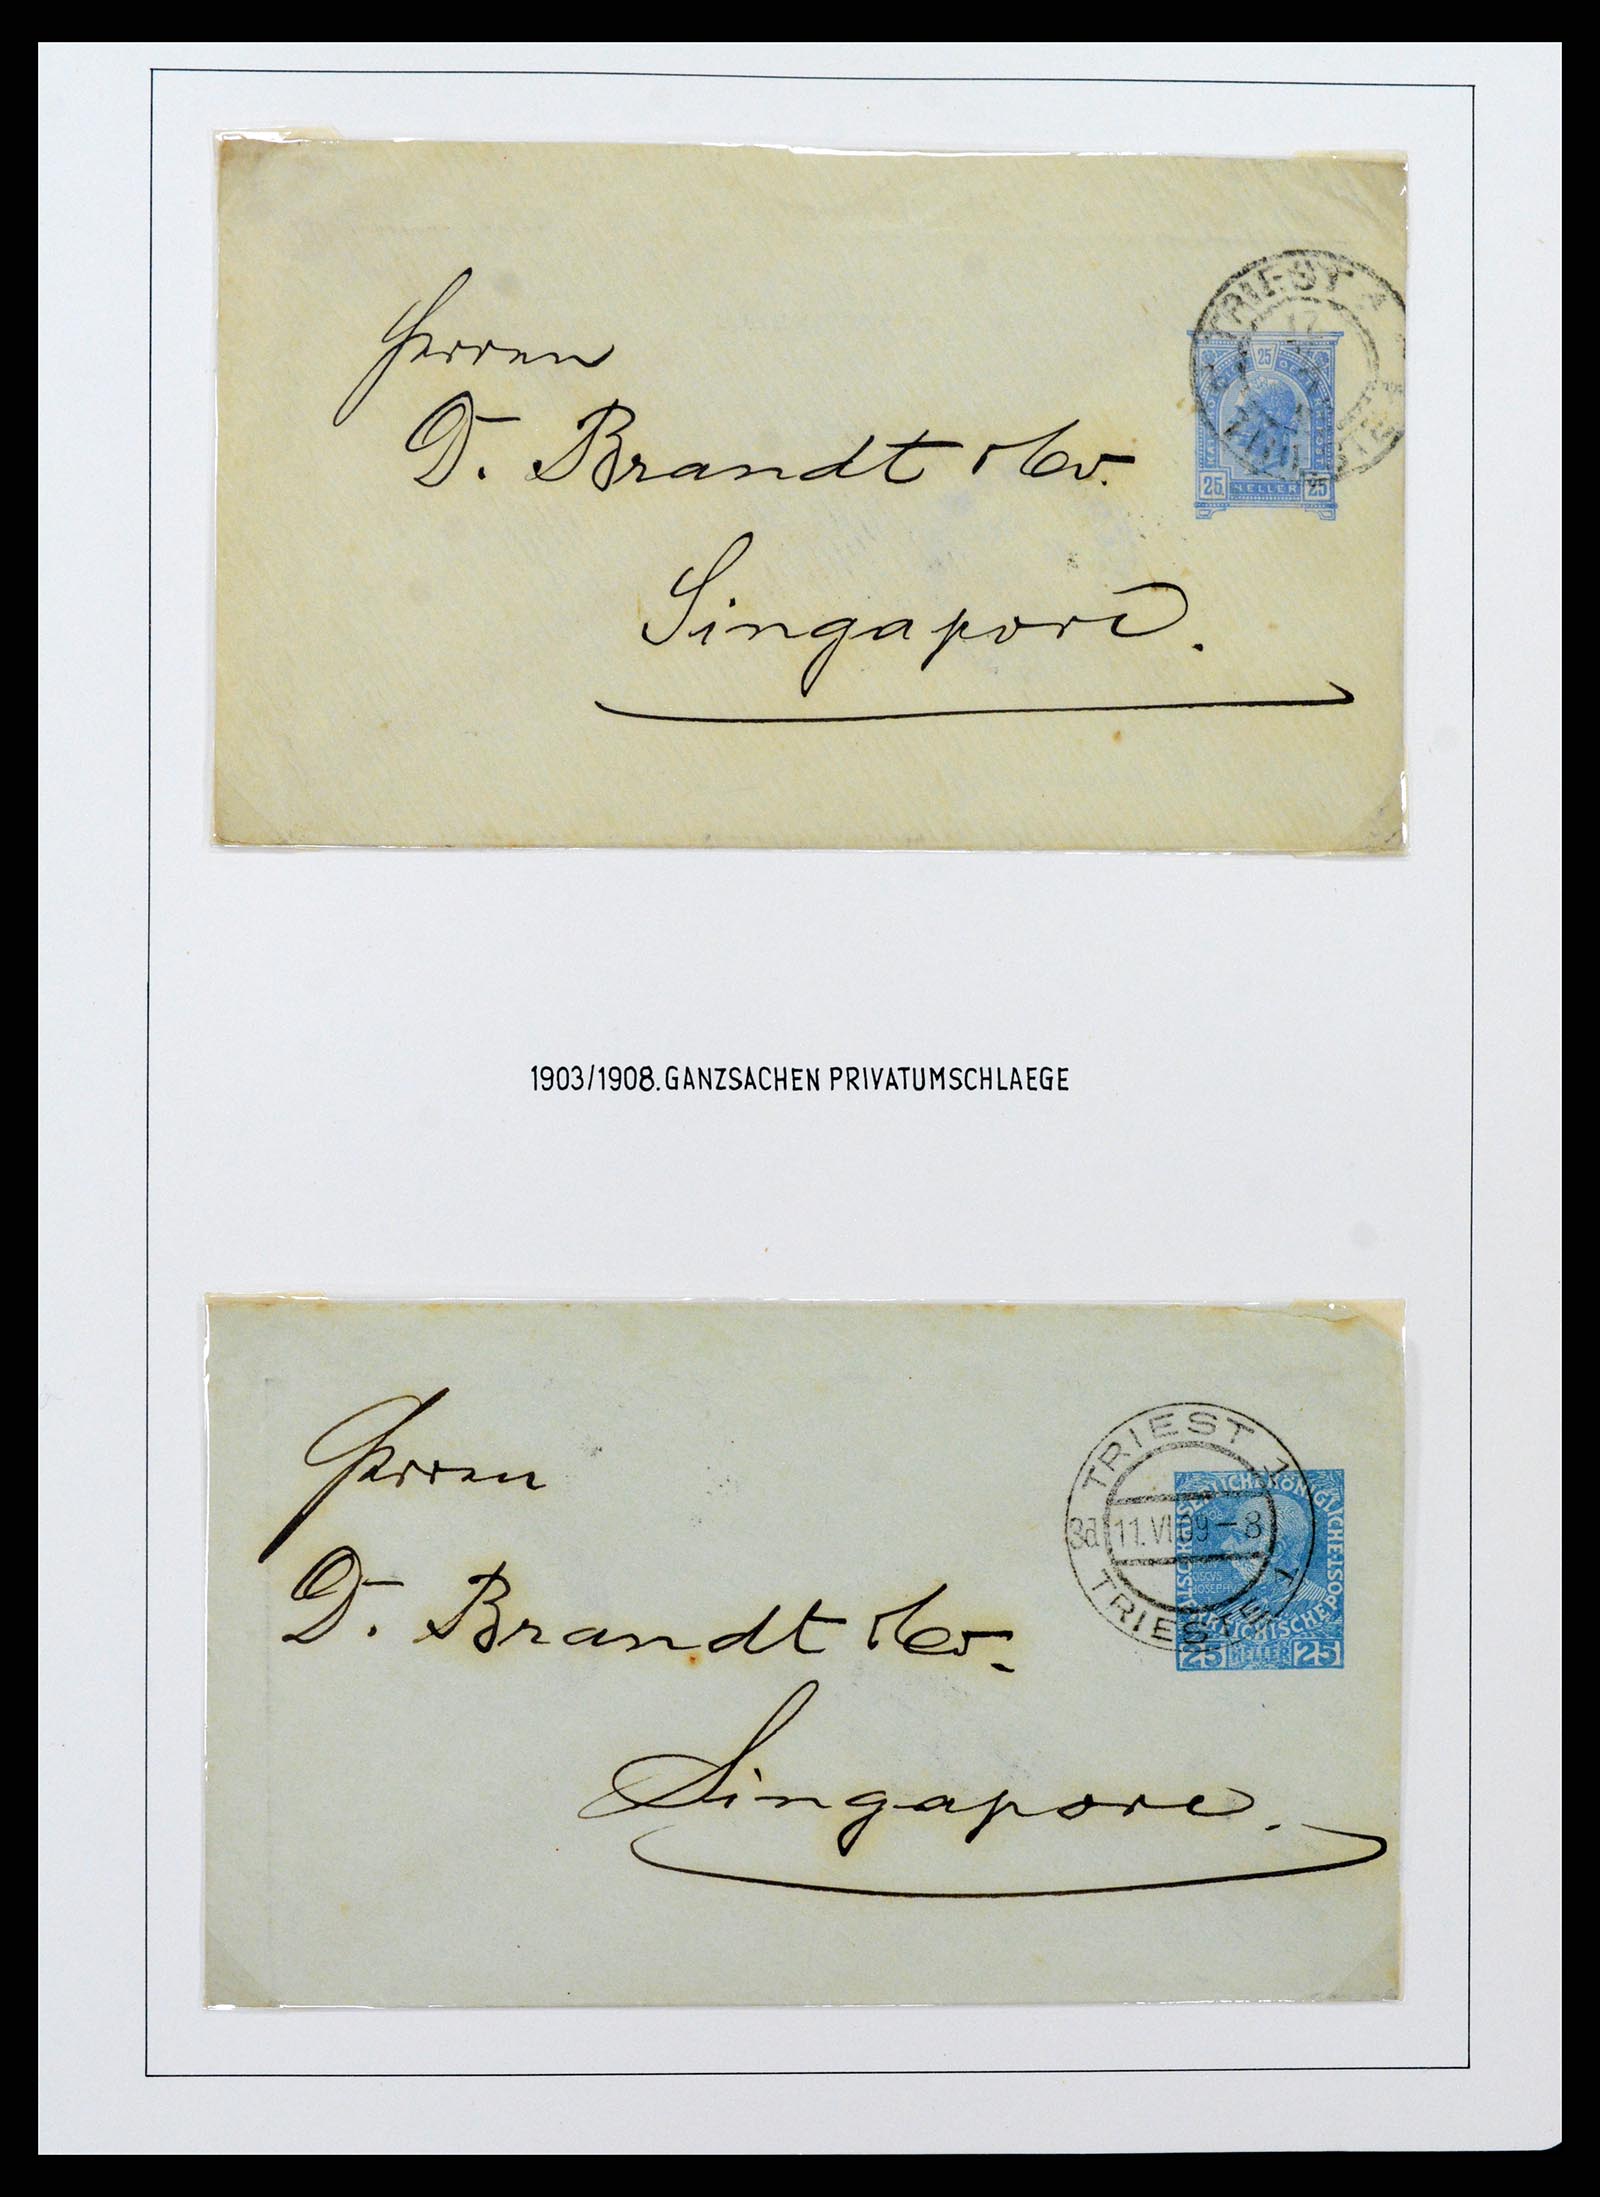 Herren
D. Brandt & Co.
Singapore.
TRIEST
25
25 HELLER 25
1903/1908. GANZSACHEN PRIVATUMSCHLAEGE
Herren
D. Brandt & Co.
Singapore.
TRIEST 1
3d 11.VI 09-8
TRIEST 1
KAISERLICHE KÖNIGLICHE
ÖSTERREICHISCHE POST
25 HELLER 25